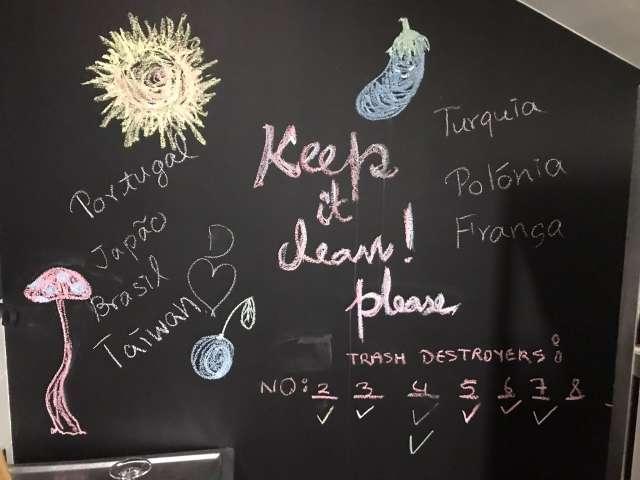 Portugal
Japão
Brasil
Taiwan
D
Keep
it
clean!
please
Turquia
Polónia
França
TRASH DESTROYERS:
NO: 2 3 4 5 6 7 8